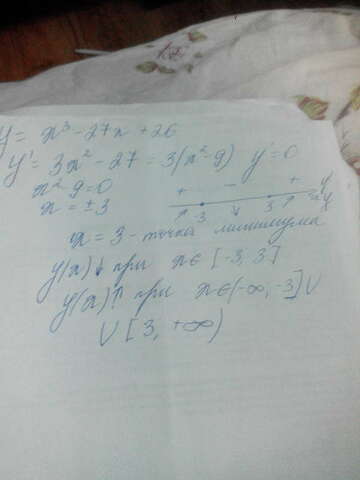 y = x³ - 27x + 26
y' = 3x² - 27 = 3(x² - 9) y' = 0
x² - 9 = 0
x = ±3
+ - + y'
-3 3 x
x = 3 - точка минимума
y(x)↓ при x ∈ [-3, 3]
y(x)↑ при x ∈ (-∞, -3] ∪
∪ [3, +∞)